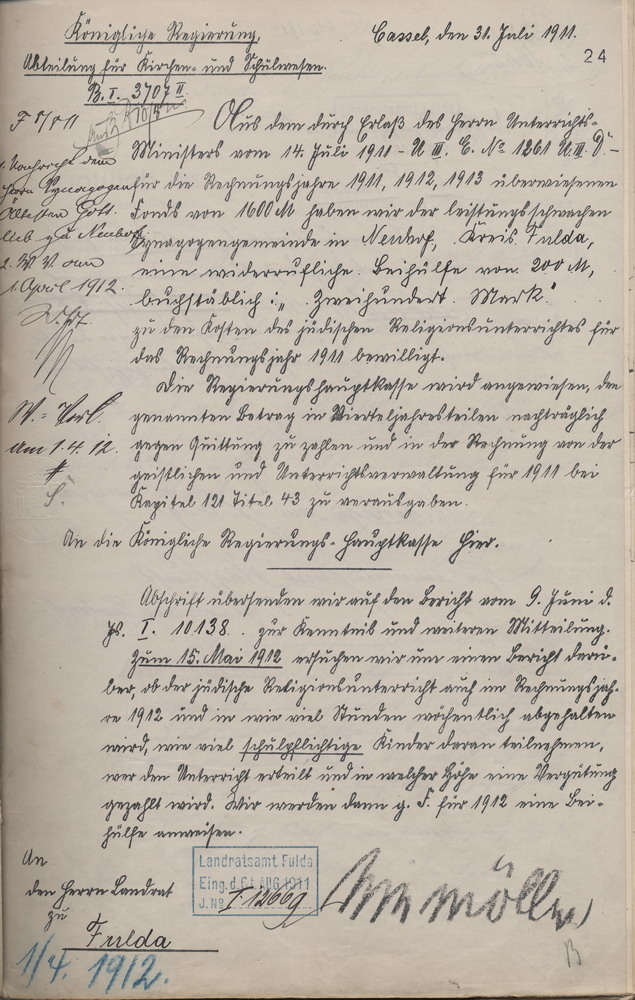 Königliche Regierung,
Abteilung für Kirchen- und Schulwesen.
B. I. 3707 II
Cassel, den 31. Juli 1911.
24
Aus dem durch Erlaß des Herrn Unterrichts-
Ministers vom 14. Juli 1911 - U III. E. No 1261 U. II. D. -
für die Rechnungsjahre 1911, 1912, 1913 überwiesenen
Fonds von 1600 M haben wir der leistungsschwachen
Synagogengemeinde in Neuhof, Kreis Fulda,
eine widerrufliche Beihülfe von 200 M,
buchstäblich: „Zweihundert Mark"
zu den Kosten des jüdischen Religionsunterrichtes für
das Rechnungsjahr 1911 bewilligt.
Die Regierungshauptkasse wird angewiesen, den
genannten Betrag in Vierteljahresteilen nachträglich
gegen Quittung zu zahlen und in der Rechnung von der
geistlichen und Unterrichtsverwaltung für 1911 bei
Kapitel 121 Titel 43 zu verausgaben.
An die Königliche Regierungs-Hauptkasse hier.
Abschrift übersenden wir auf den Bericht vom 9. Juni d.
Js. I. 10138. zur Kenntnis und weiteren Mitteilung.
Zum 15. Mai 1912 ersuchen wir um einen Bericht darü-
ber, ob der jüdische Religionsunterricht auch im Rechnungsjah-
re 1912 und in wie viel Stunden wöchentlich abgehalten
wird, wie viel schulpflichtige Kinder daran teilnehmen,
wer den Unterricht erteilt und in welcher Höhe eine Vergütung
gezahlt wird. Wir werden dann g. F. für 1912 eine Bei-
hülfe anweisen.
An
den Herrn Landrat
zu
Fulda
1/4. 1912.
Landratsamt Fulda
Eing. d. 6. AUG 1911
J. No I 12669
1. Nachricht dem
Herrn Synagogen
Ältesten Gott-
lieb zu Neuhof
2. W. V. am
1. April 1912.
am 1. 4. 12.